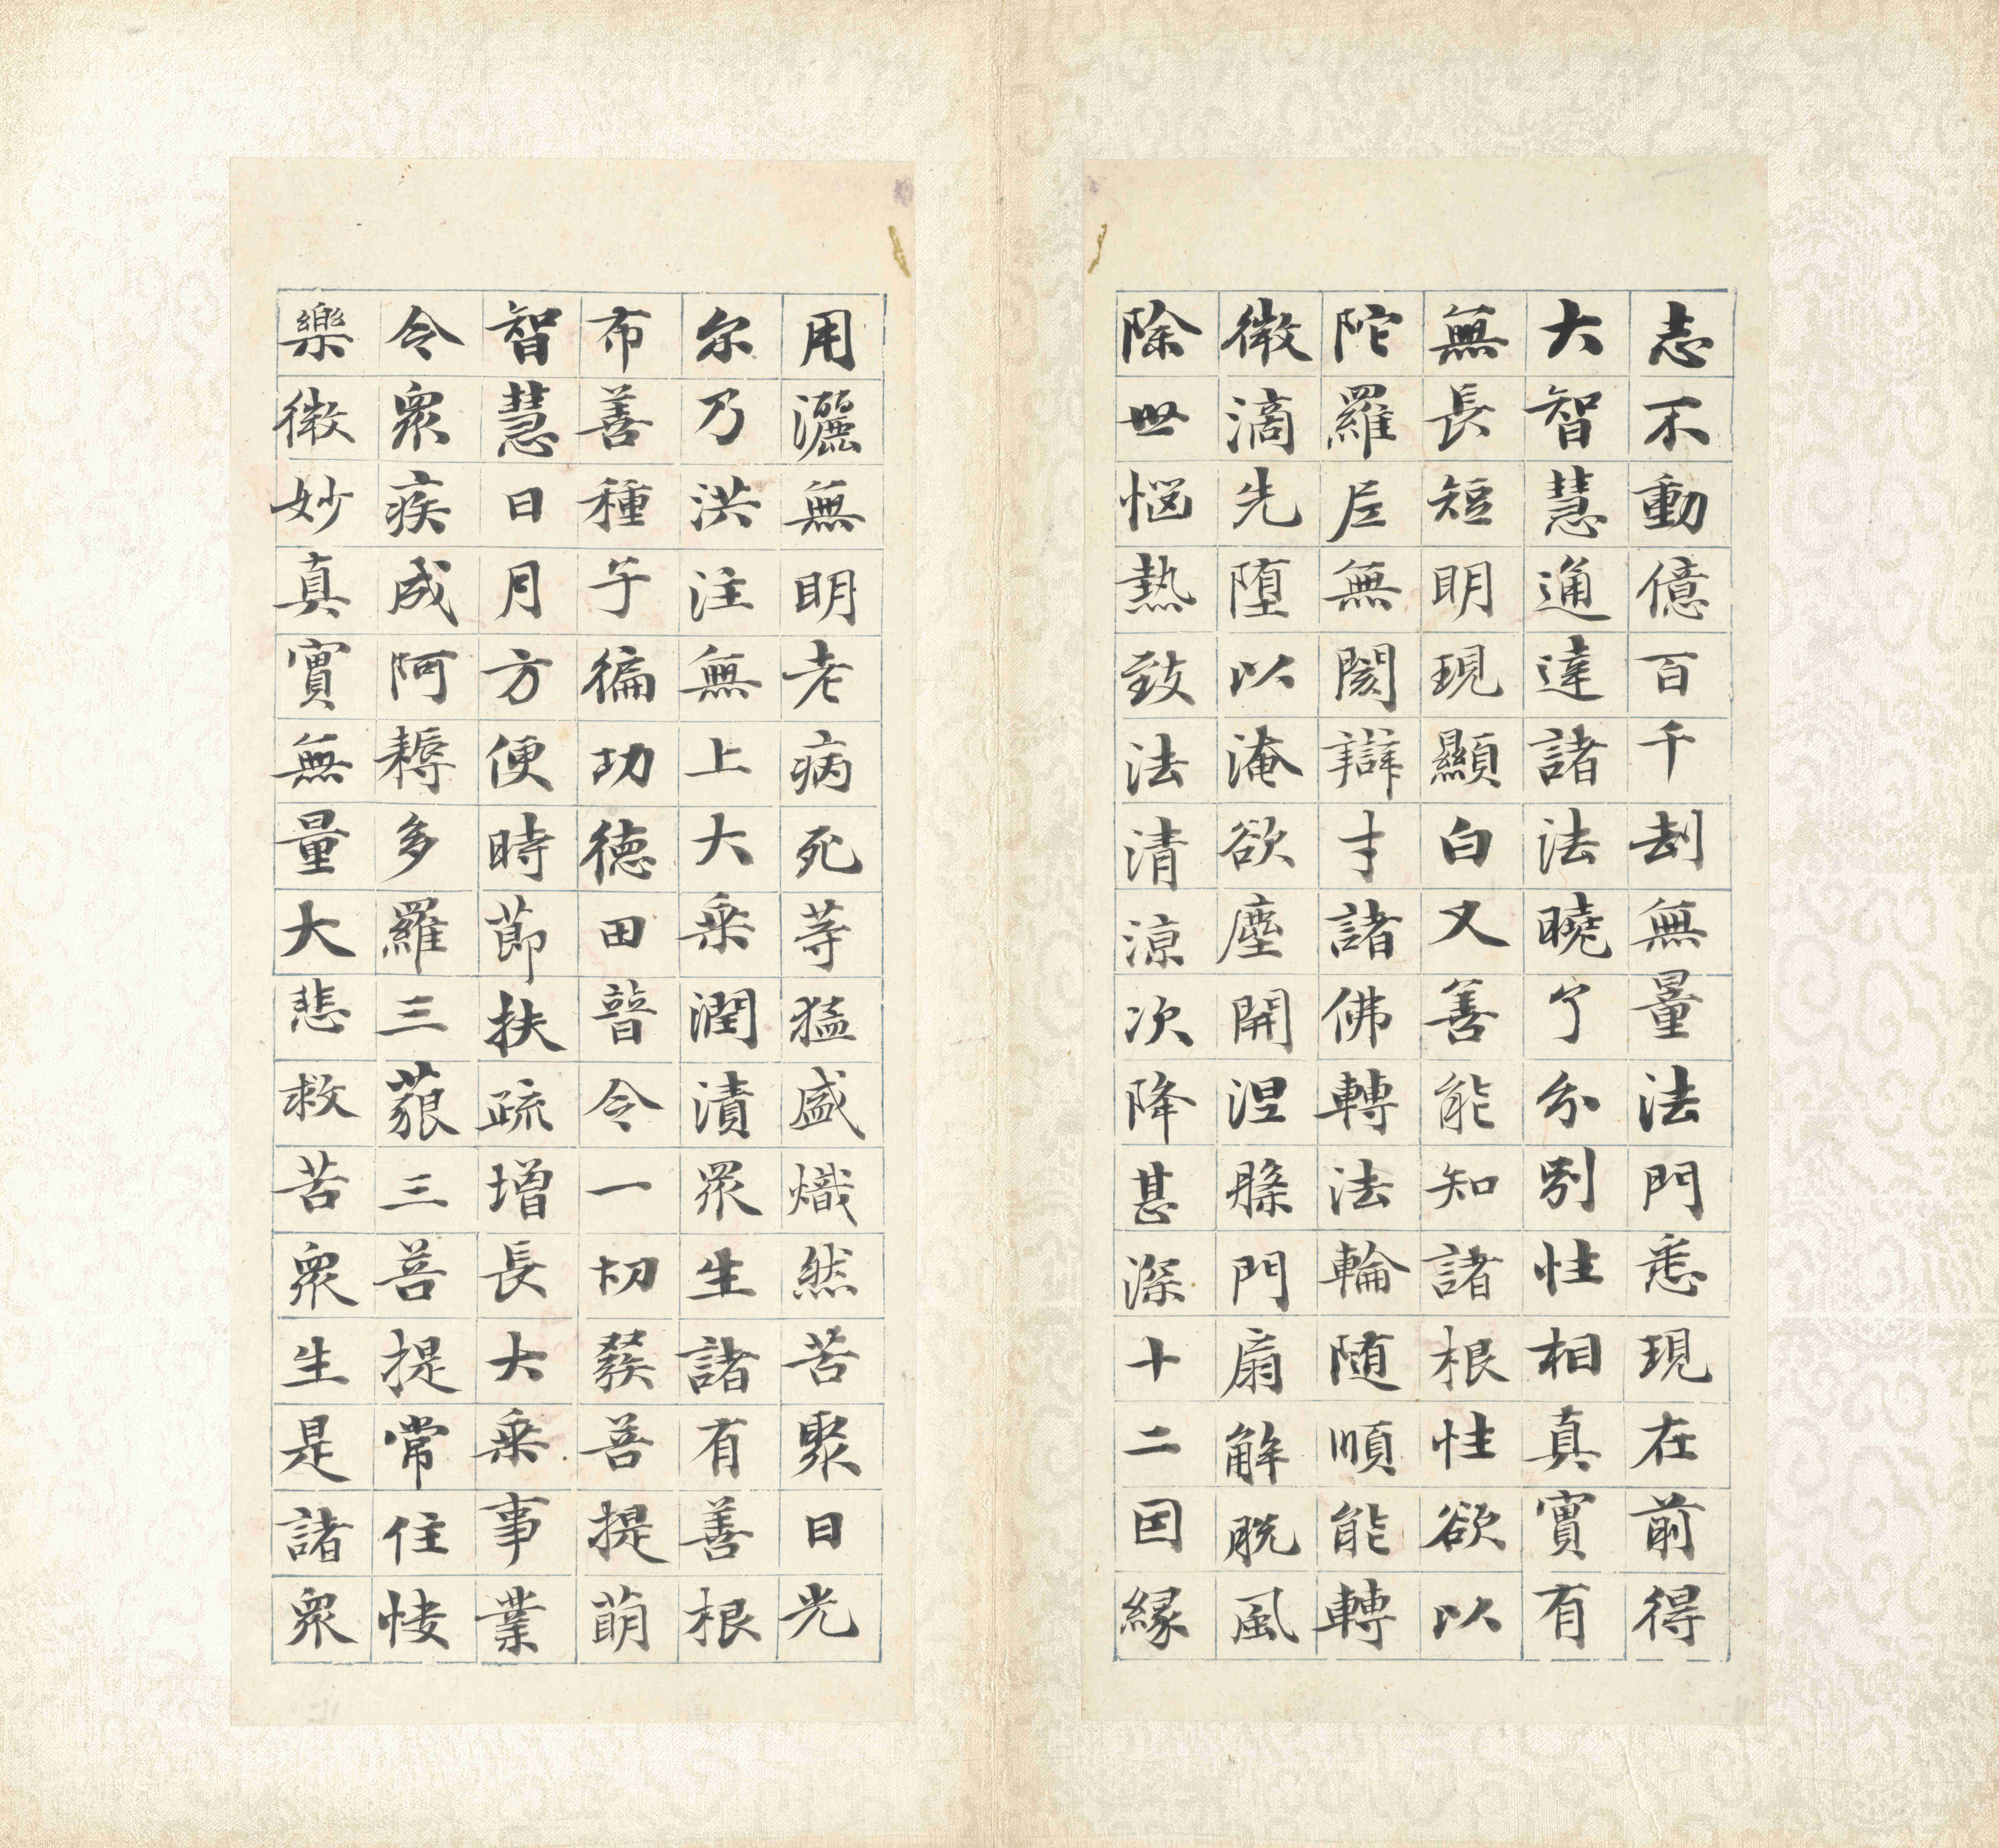 志不動億百千劫無量法門悉現在前得
大智慧通達諸法曉了分別性相真實有
無長短明現顯白又善能知諸根性欲以
陀羅尼無閡辯才諸佛轉法輪隨順能轉
微渧先堕以淹欲塵開涅槃門扇解脫風
除世惱熱致法清涼次降甚深十二因緣
用灑無明老病死等猛盛熾然苦聚日光
尔乃洪注無上大乘潤漬眾生諸有善根
布善種子徧功德田普令一切發菩提萌
智慧日月方便時節扶疏增長大乘事業
令眾疾成阿耨多羅三藐三菩提常住快
樂微妙真實無量大悲救苦眾生是諸眾